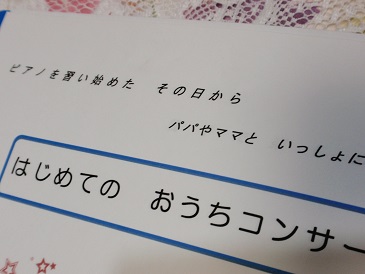 ピアノを習い始めた　その日から
パパやママと　いっしょに
はじめての　おうちコンサー